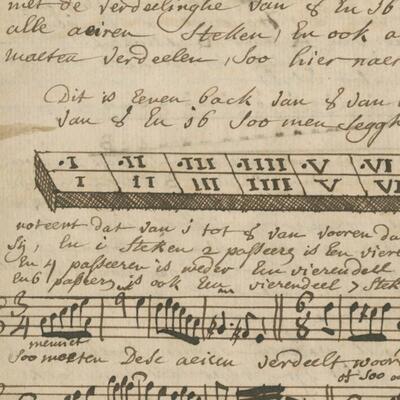 met de verdeelinghe van 8 En 16
alle aeiren Steken, En ook a
moeten verdeelen, Soo hier naer
Dit is Eenen back van 8 van
van 8 En 16 Soo men Seggh
·I ·II ·III ·IIII ·V ·VI
I II III IIII V VI
noteert dat van 1 tot 8 van vooren da
Sij, En 1 Steken 2 passeert is Een viere
En 4 passeeren is weder Een vierendeel
En 6 passeren is ook Een vierendeel 7 Stek
3 4 6 8
menuet
Soo moeten Dese aeiren verdeelt woor
of Soo